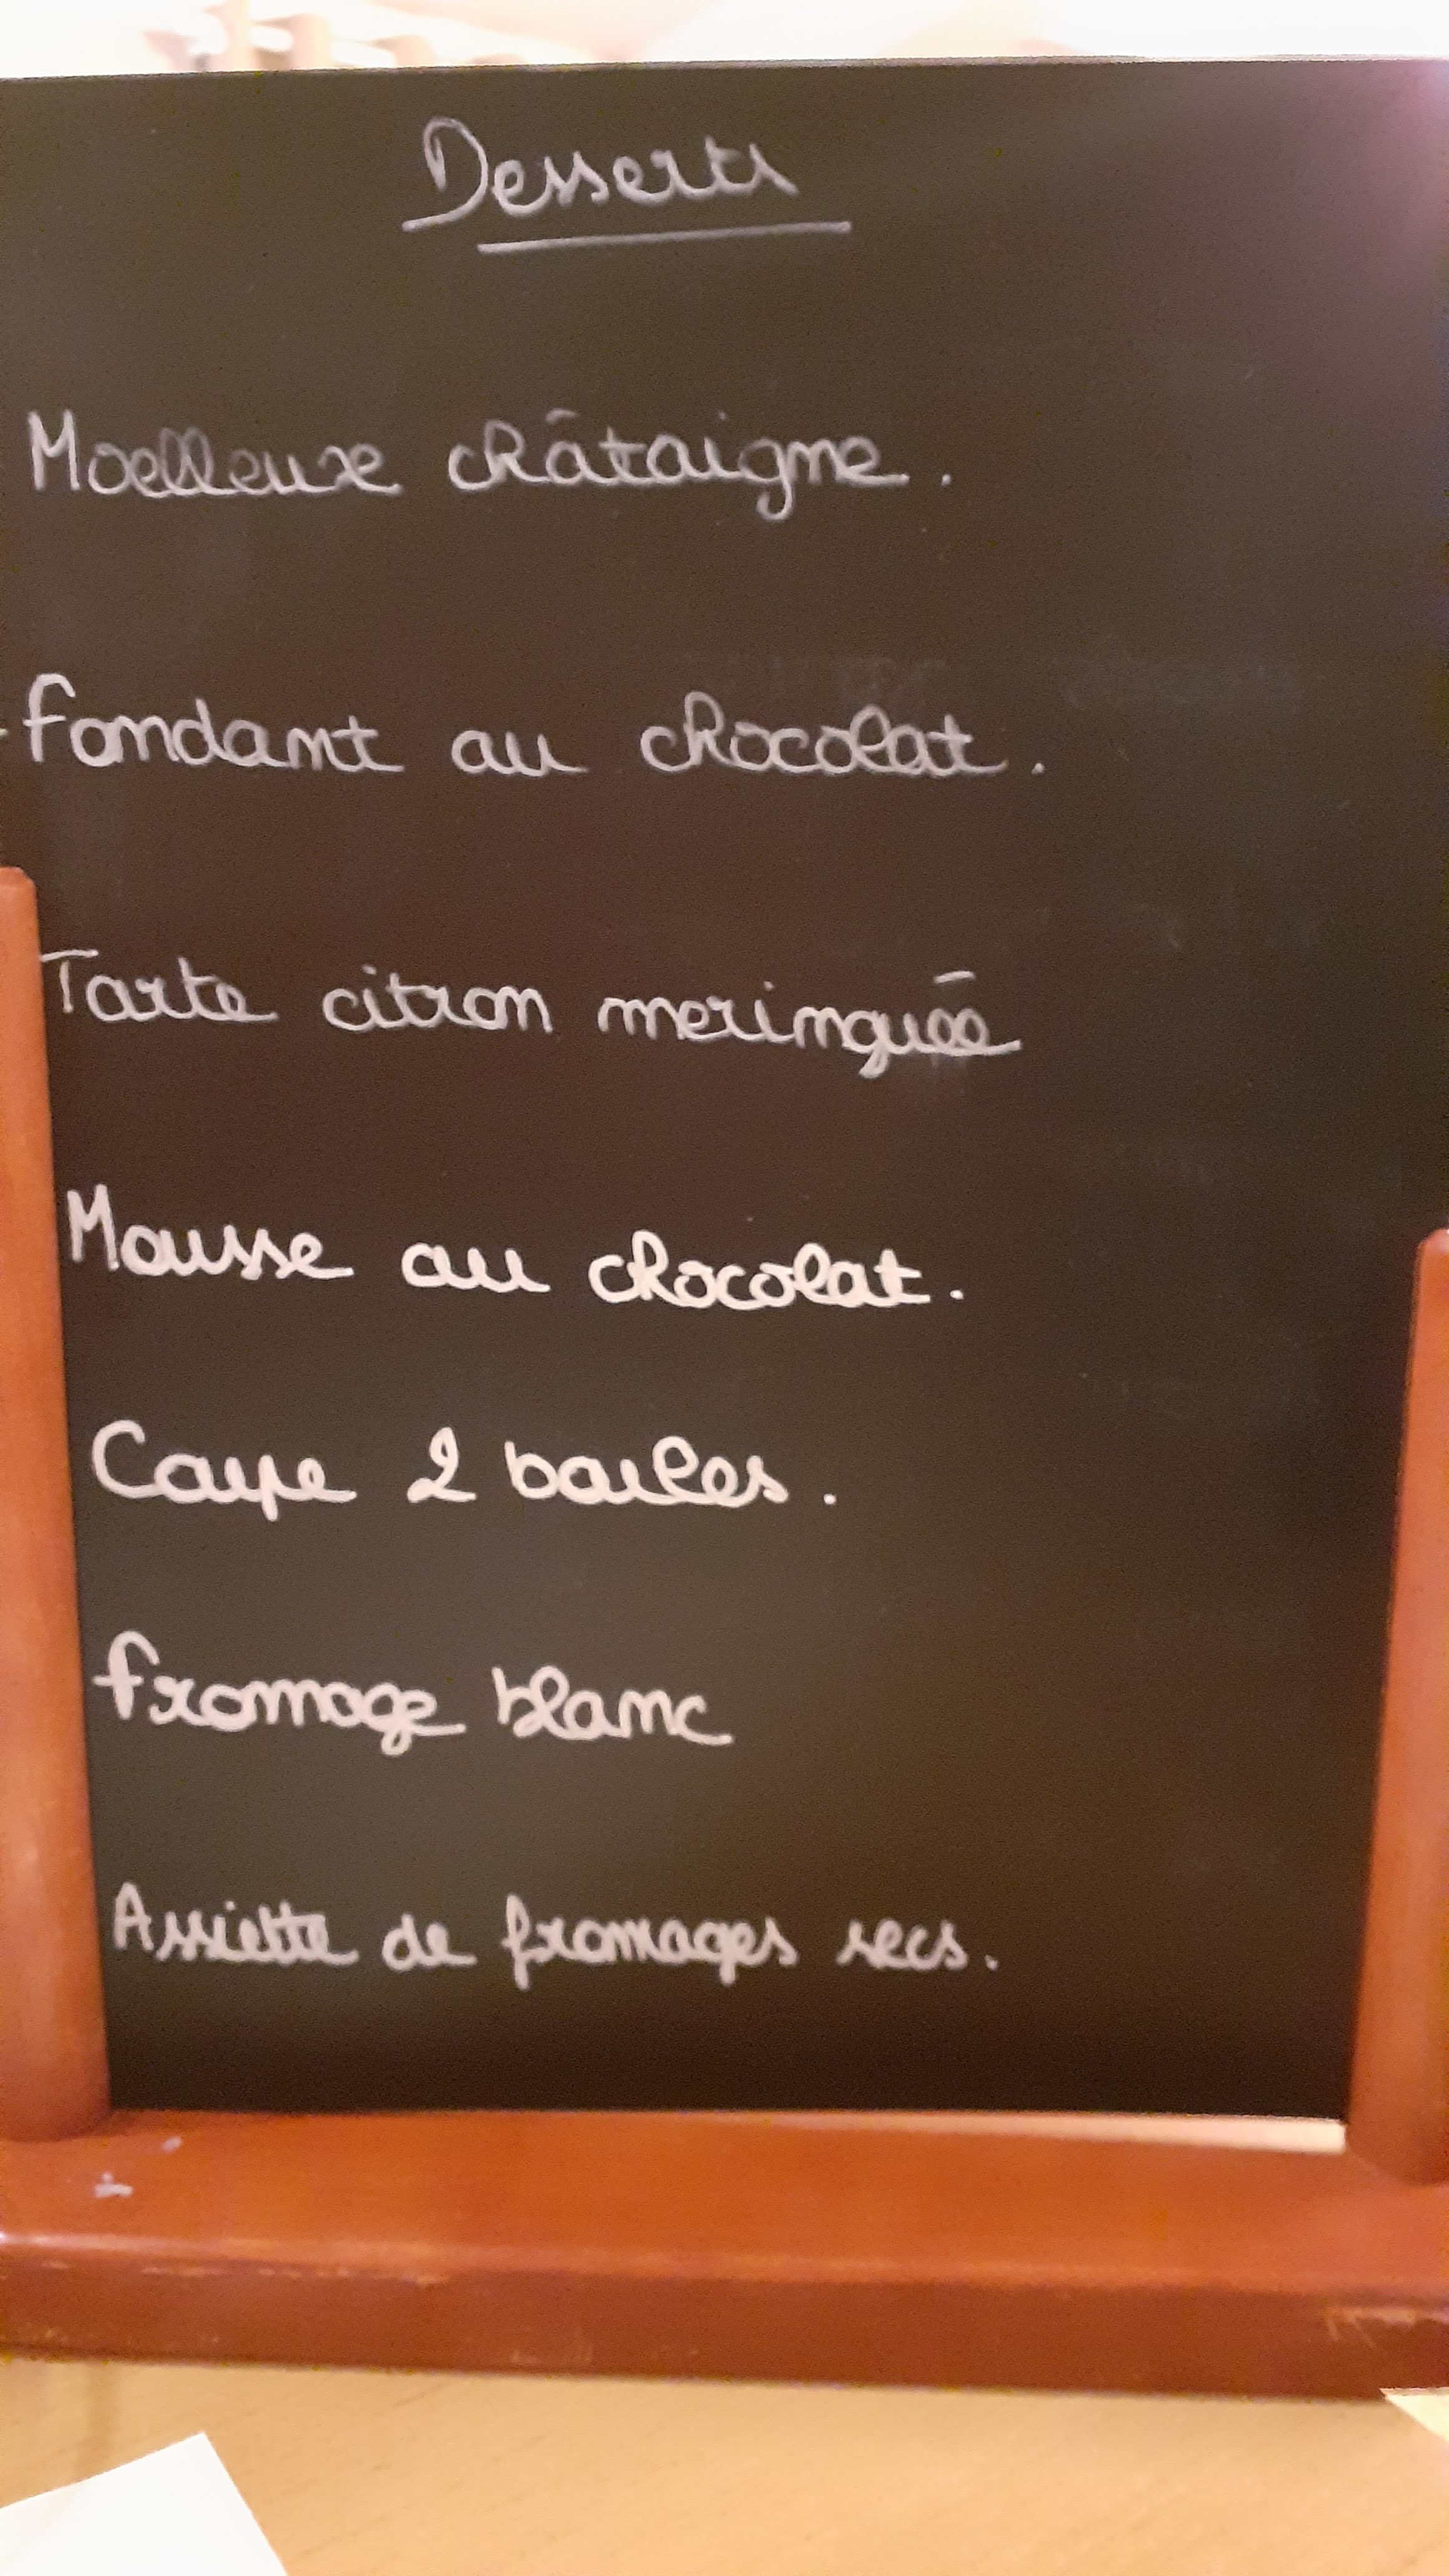 Desserts
Moelleux châtaigne.
Fondant au chocolat.
Tarte citron meringuée
Mousse au chocolat.
Coupe 2 boules.
Fromage blanc
Assiette de fromages secs.